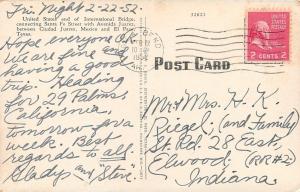 Fri. Night 2-22-52
United States end of International Bridge,
connecting Santa Fe Street with Avenida Juarez,
between Ciudad Juarez, Mexico and El Paso,
Texas.
Hope everyone OK
We are fine and
having a good
trip. Heading
for 29 Palms,
California,
tomorrow for a
week. Best
regards to all.
Gladys and Steve.
32621
POST CARD
2 CENTS 2
Mr & Mrs. H. K.
Riegel, (and Family)
St. Rd. 28 East,
Elwood (RR#2)
Indiana.